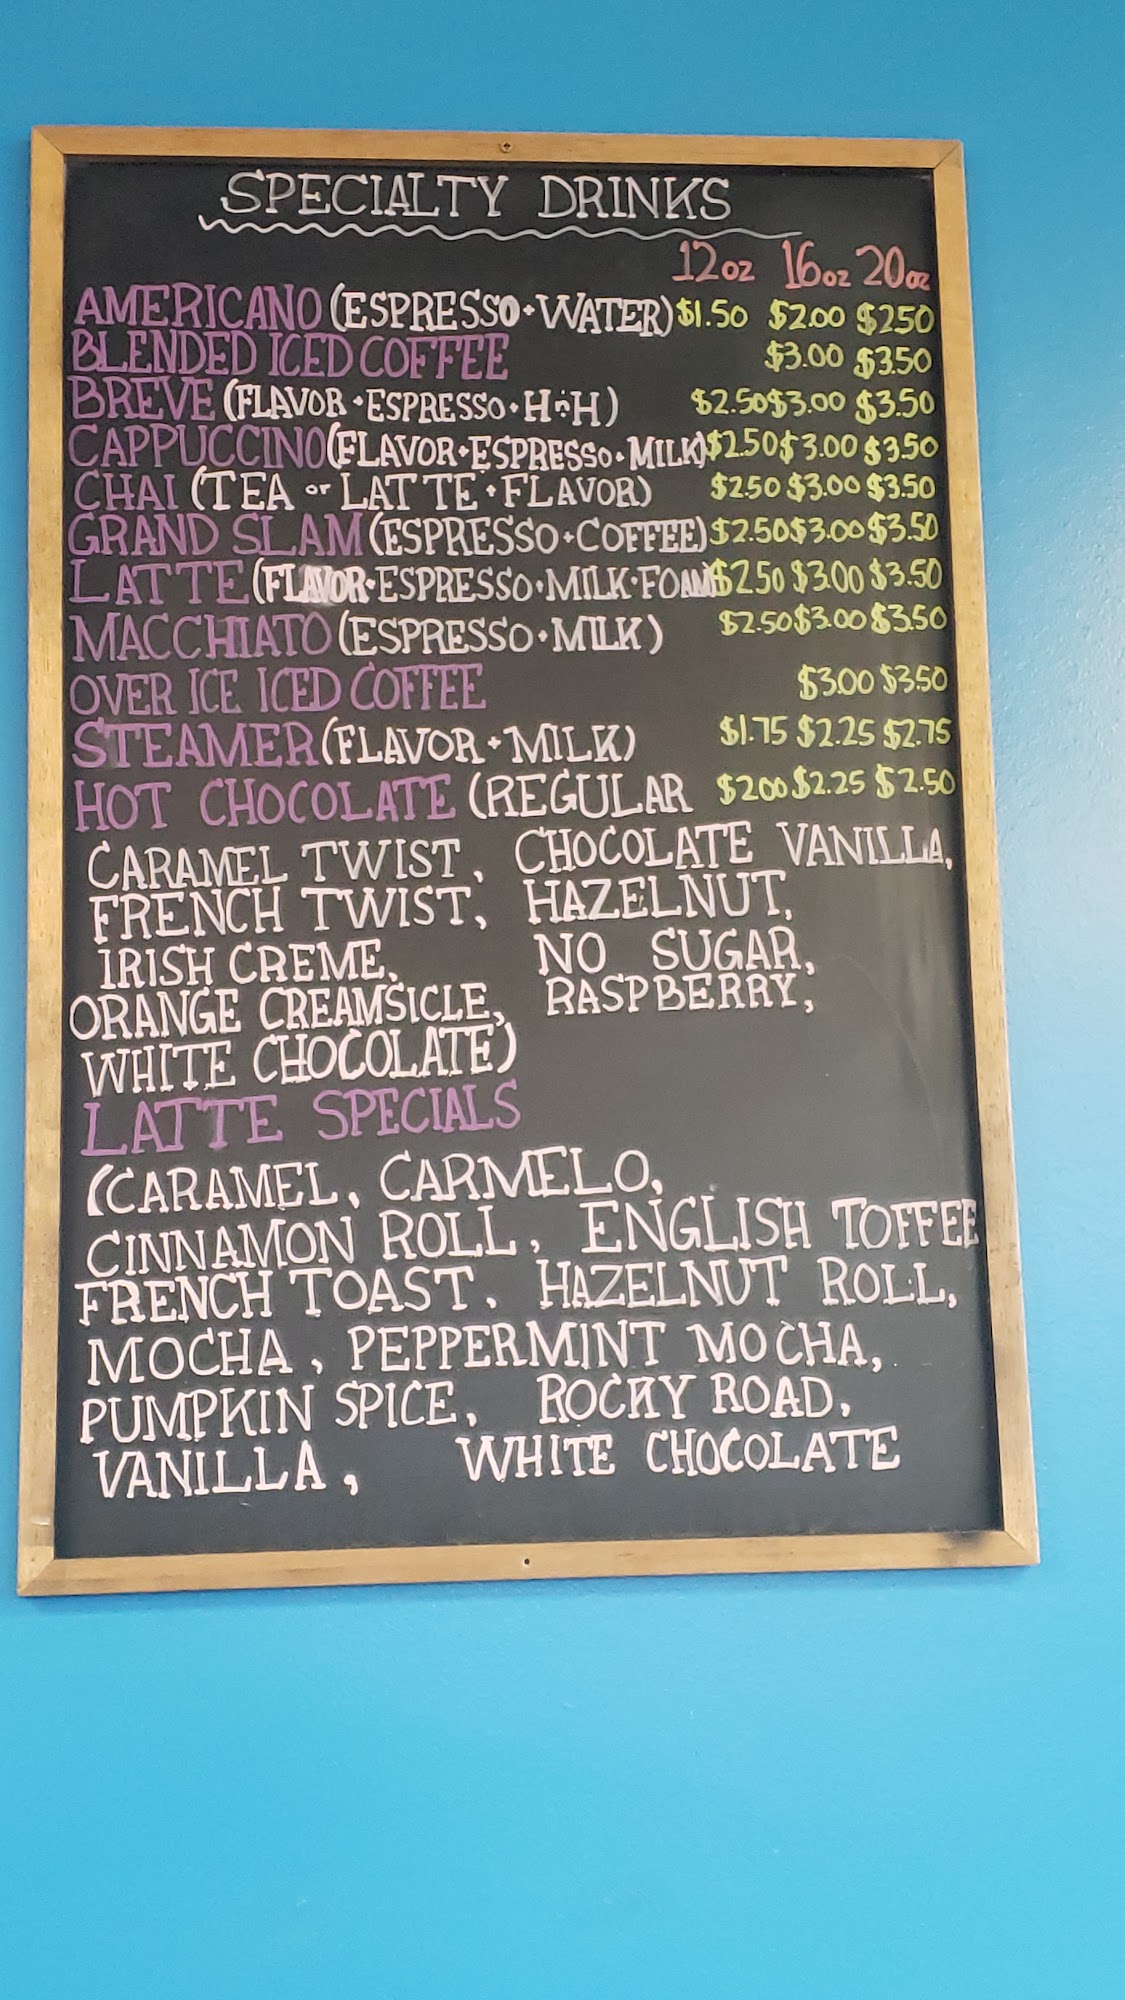 SPECIALTY DRINKS
12oz 16oz 20oz
AMERICANO (ESPRESSO·WATER) $1.50 $2.00 $250
BLENDED ICED COFFEE $3.00 $3.50
BREVE (FLAVOR·ESPRESSO·HnH) $2.50 $3.00 $3.50
CAPPUCCINO (FLAVOR·ESPRESSO·MILK) $250 $3.00 $3.50
CHAI (TEA or LATTE·FLAVOR) $250 $3.00 $3.50
GRAND SLAM (ESPRESSO·COFFEE) $2.50 $3.00 $3.50
LATTE (FLAVOR·ESPRESSO·MILK·FOAM) $250 $3.00 $3.50
MACCHIATO (ESPRESSO·MILK) $2.50 $3.00 $3.50
OVER ICE ICED COFFEE $3.00 $350
STEAMER (FLAVOR·MILK) $1.75 $2.25 $2.75
HOT CHOCOLATE (REGULAR $200 $2.25 $2.50
CARAMEL TWIST, CHOCOLATE VANILLA,
FRENCH TWIST, HAZELNUT,
IRISH CREME, NO SUGAR,
ORANGE CREAMSICLE, RASPBERRY,
WHITE CHOCOLATE)
LATTE SPECIALS
(CARAMEL, CARMELO,
CINNAMON ROLL, ENGLISH TOFFEE
FRENCH TOAST, HAZELNUT ROLL,
MOCHA, PEPPERMINT MOCHA,
PUMPKIN SPICE, ROCKY ROAD,
VANILLA, WHITE CHOCOLATE